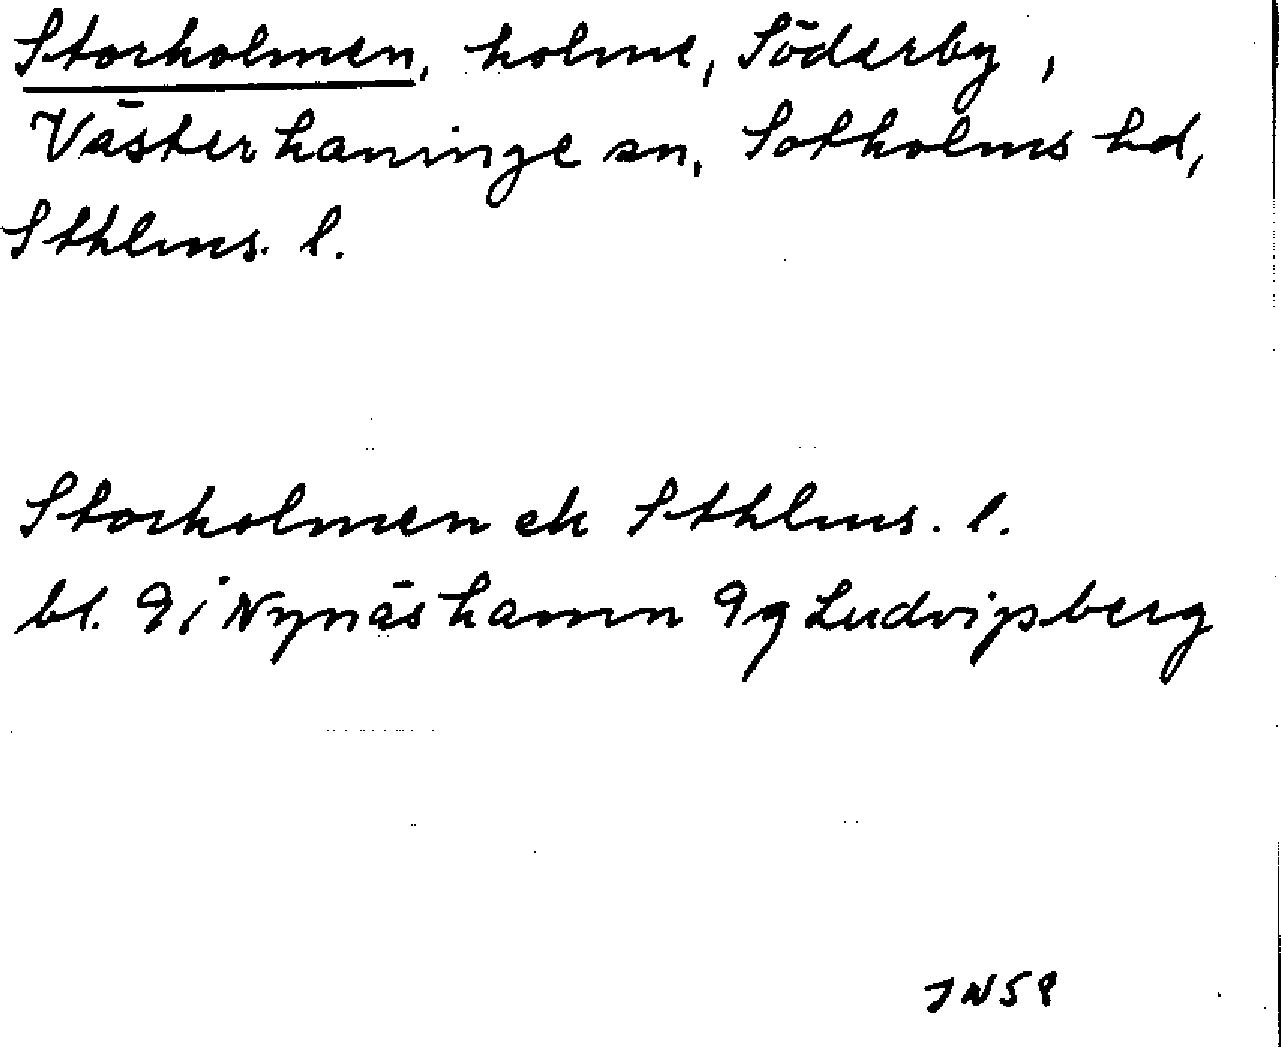 Storholmen, holme, Söderby,
Västerhaninge sn, Sotholms hd,
Sthlms. l.
Storholmen ek Sthlms. l.
bl. 9i Nynäshamn 9g Ludvigsberg
JN59